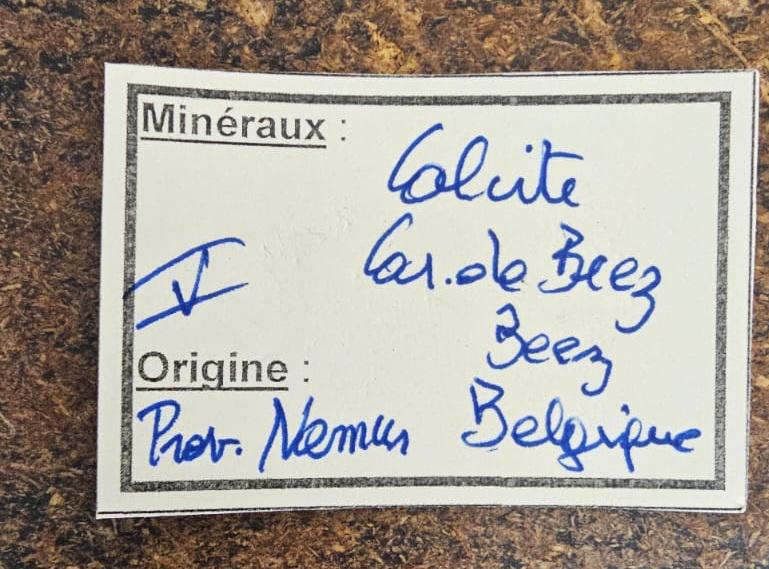 Minéraux :
Calcite
Car. de Beez
V
Beez
Origine :
Prov. Namur Belgique